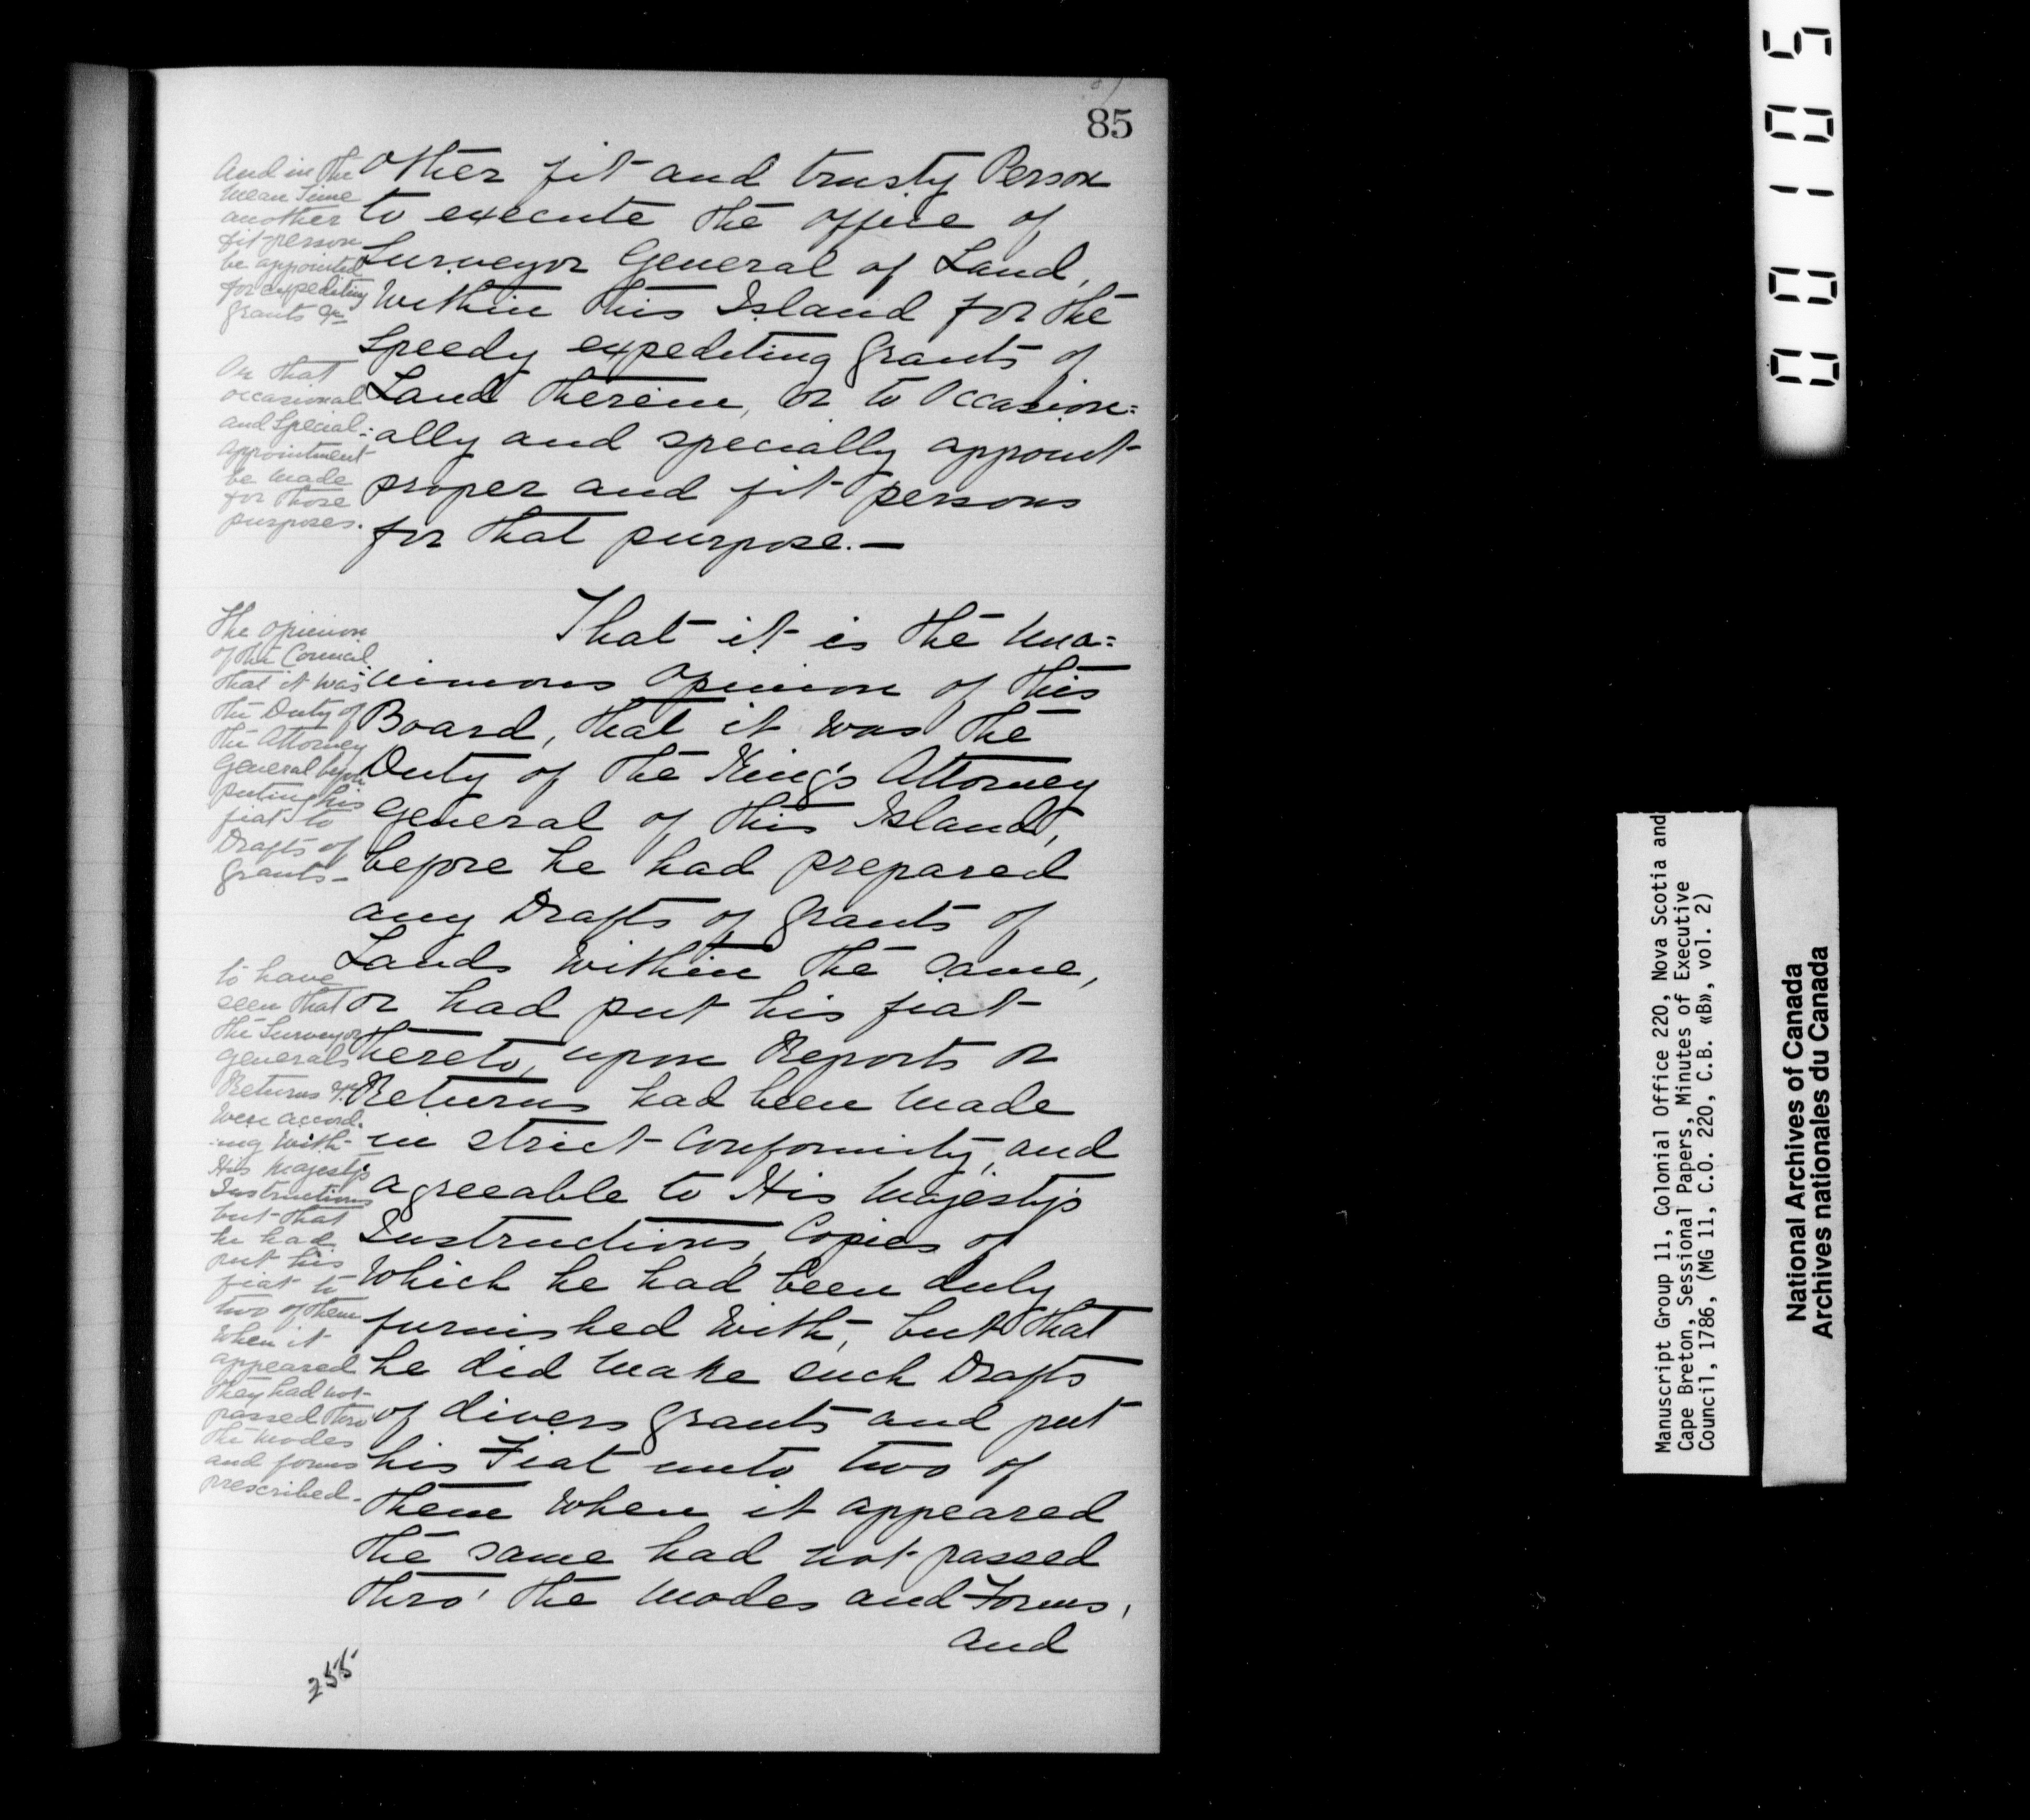 85
other fit and trusty Person
to execute the office of
Surveyor General of Land,
Within this Island for the
Speedy expediting Grants of
Land therein, or to Occasion=
ally and specially appoint
proper and fit persons
for that purpose.—
That it is the Una=
nimous Opinion of this
Board, that it was the
Duty of the King's Attorney
General of this Island,
before he had prepared
any Drafts of Grants of
Lands Within the same,
or had put his fiat
thereto, upon Reports or
Returns had been Made
in strict Conformity, and
agreeable to His Majesty's
Instructions, Copies of
Which he had been duly
furnished With, but that
he did Make such Drafts
of divers Grants and put
his Fiat unto two of
them When it appeared
the same had not passed
thro' the Modes and Forms,
and
And in the
Mean Time
another
fit person
be appointed
for expediting
Grants &c
Or that
occasional
and Special
appointment
be Made
for those
purposes.
The Opinion
of the Council
that it Was
the Duty of
the Attorney
General before
putting his
fiat to
Drafts of
Grants—
to have
seen that
the Surveyor
Generals
Returns &c
Were accord-
ing With
His Majesty's
Instructions
but that
he had
put his
fiat to
two of them
When it
appeared
they had not
passed thro
the Modes
and forms
prescribed.
255
00105
Manuscript Group 11, Colonial Office 220, Nova Scotia and
Cape Breton, Sessional Papers, Minutes of Executive
Council, 1786, (MG 11, C.O. 220, C.B. «B», vol. 2)
National Archives of Canada
Archives nationales du Canada